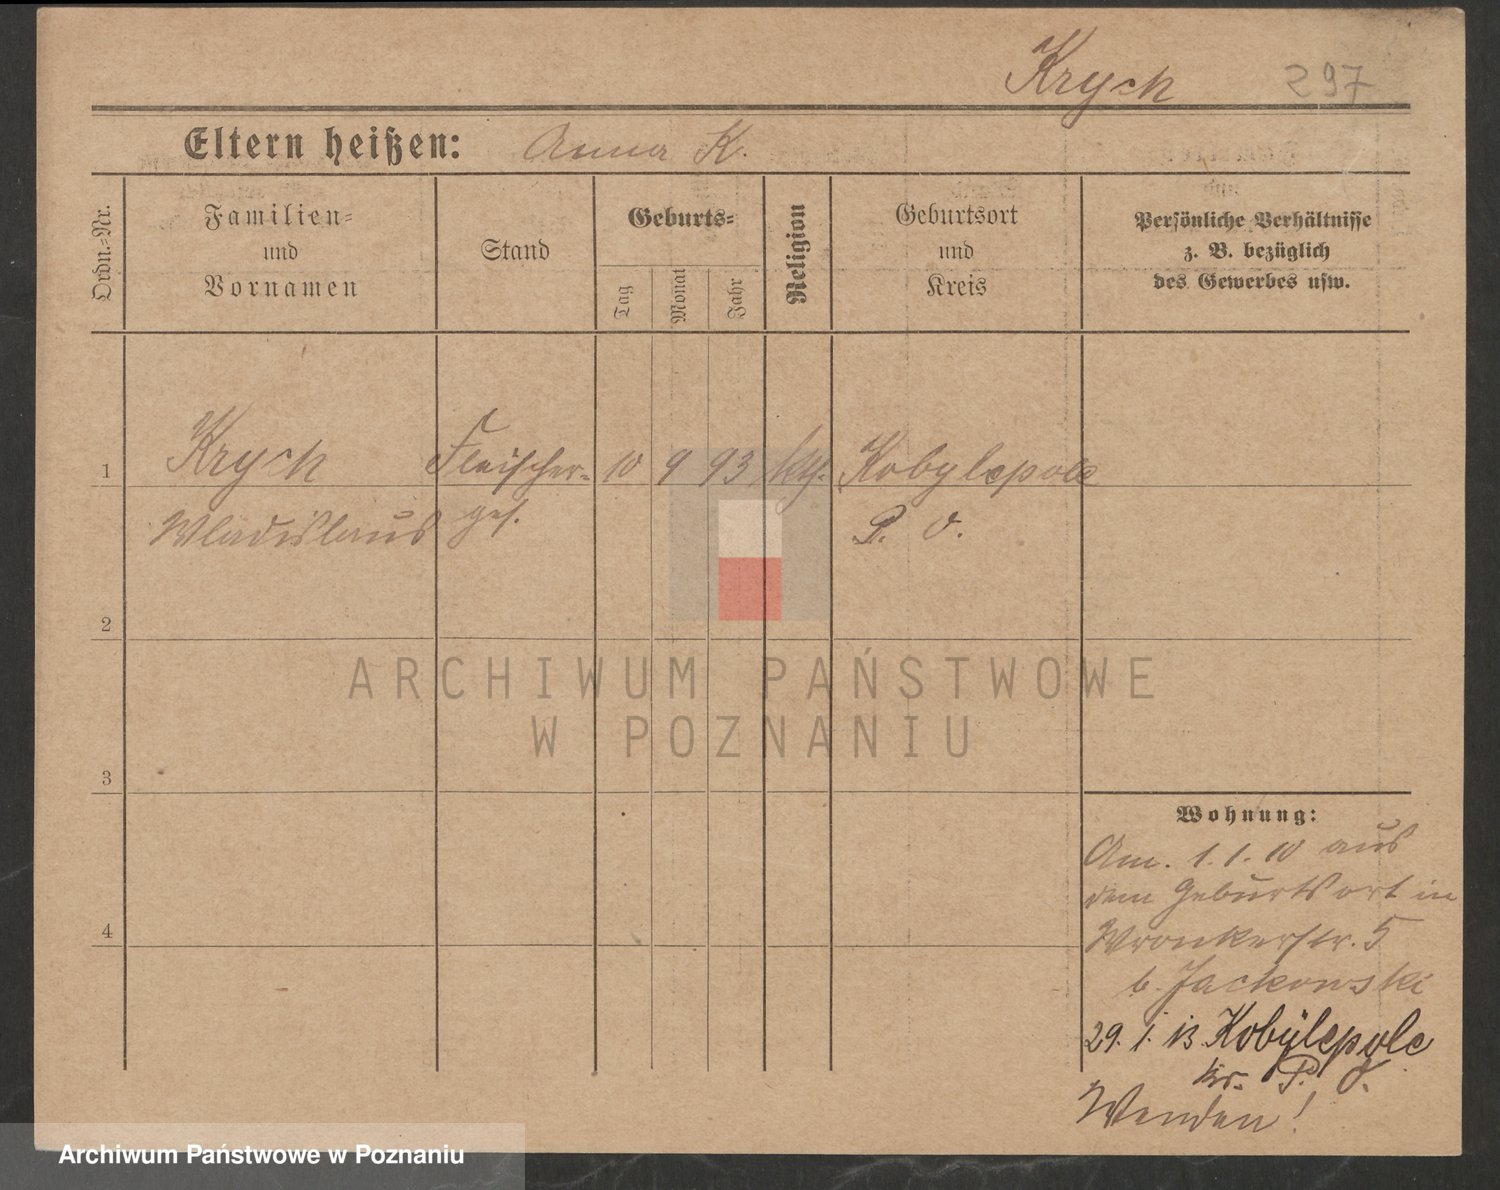 Krych 297
Eltern heißen: Anna K.
Ordn.=Nr.
Familien=
und
Vornamen
Stand
Geburts=
Tag
Monat
Jahr
Religion
Geburtsort
und
Kreis
Persönliche Verhältnisse
z. B. bezüglich
des Gewerbes usw.
1 Krych Fleischer= 10 9 93 kth. Kobylepole
Wladislaus ges. P. O.
2
ARCHIWUM PAŃSTWOWE
W POZNANIU
3
Wohnung:
Am. 1.1.10 aus
dem Geburtsort in
4
Wronkerstr. 5
b. Jackowski
29. 1. 13 Kobylepole
Kr. P. O.
Wenden!
Archiwum Państwowe w Poznaniu